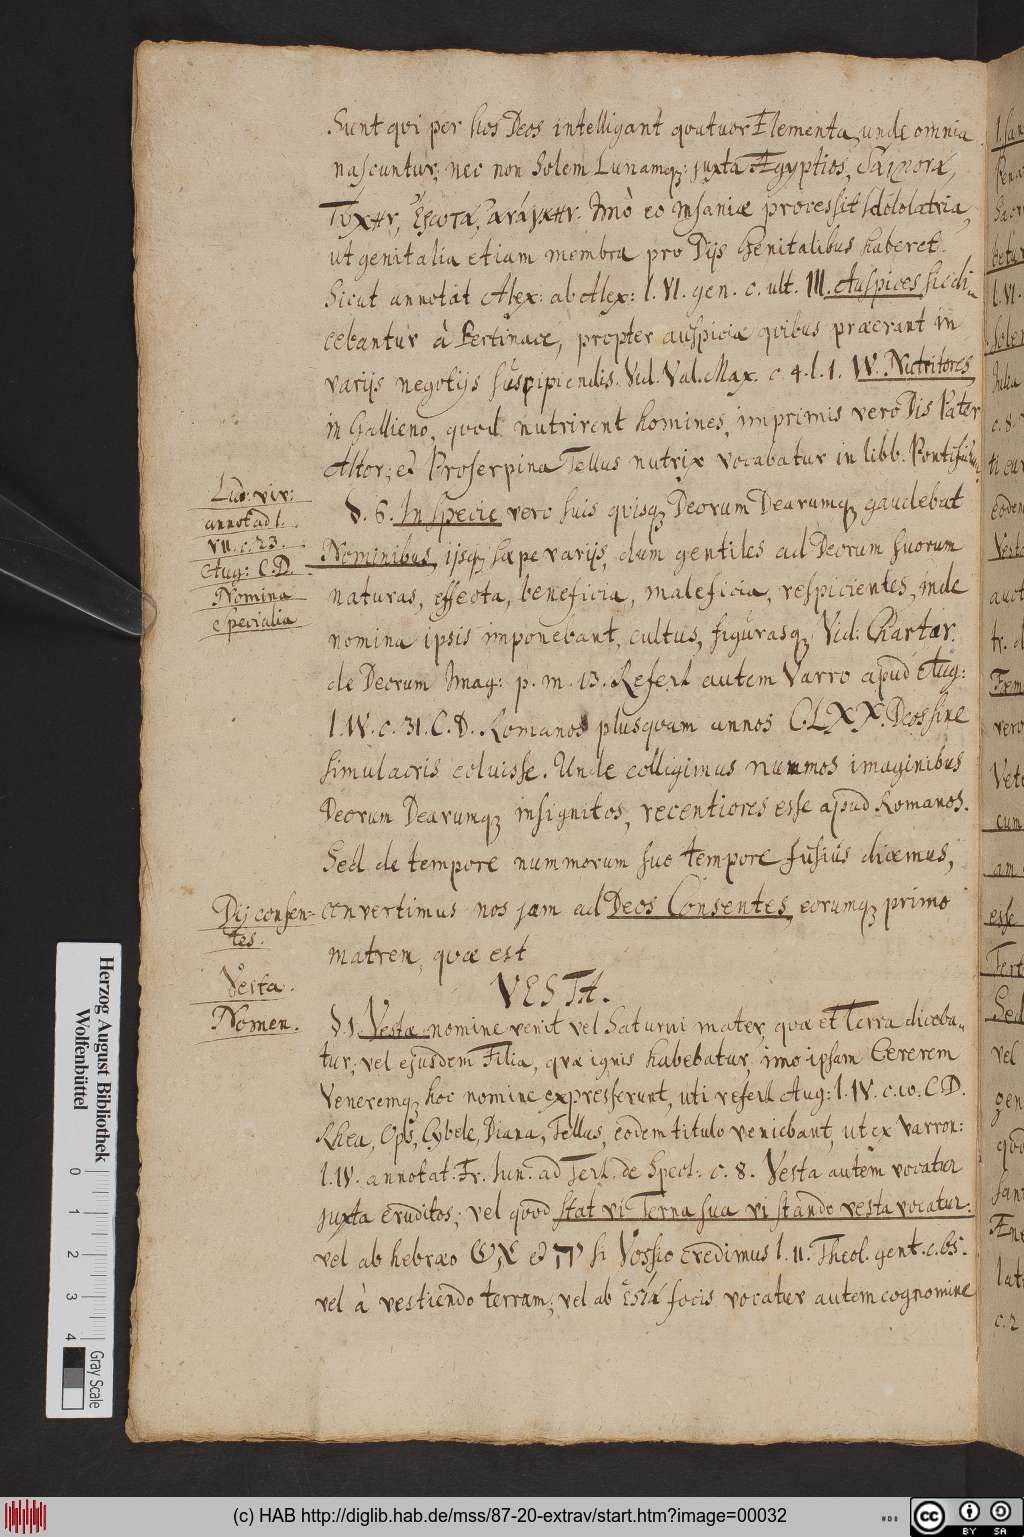 Sunt qvi per hos Deos intelligant qvatuor Elementa, unde omnia
nascuntur; nec non Solem Lunamq;: juxta Ægyptios,
Imò eo insaniæ processit Idololatria,
ut genitalia etiam membra pro Dijs Genitalibus haberet.
Sicut annotat Alex: ab Alex: l. VI. gen. c. ult. III. Auspices sic di-
cebantur à Pertinace, propter auspicia qvibus præerant in
varijs negotijs suscipiendis. Vid. Val. Max. c. 4. l. 1. IV. Nutritores
in Gallieno, quod nutrirent homines, imprimis vero Dis Pater
Altor; et Proserpina Tellus nutrix vocabatur in libb. Pontificum
§. 6. In specie vero suis qvisq; Deorum Dearumq; gaudebat
Nominibus, ijsq; sæpe varijs, dum gentiles ad Deorum suorum
naturas, effecta, beneficia, maleficia, respicientes, inde
nomina ipsis imponebant, cultus, figurasq; Vid: Chartar.
de Deorum Imag: p. m. 13. Refert autem Varro apud Aug:
l. IV. c. 31. C. D. Romanos plusquam annos CLXX. Deos sine
simulacris coluisse. Unde colligimus nummos imaginibus
Deorum Dearumq; insignitos, recentiores esse apud Romanos.
Sed de tempore nummorum suo tempore fusius dicemus,
convertimus nos jam ad Deos Consentes, eorumq; primo
matrem, quæ est
VESTA.
§. 1. Vestæ nomine venit vel Saturni mater, quæ et Terra diceba-
tur; vel ejusdem Filia, qvæ ignis habebatur, imo ipsam Cererem
Veneremq; hoc nomine expresserunt, uti refert Aug: l. IV. c. 10. C. D.
Rhea, Ops, Cybele, Diana, Tellus, eodem titulo veniebant, ut ex Varron:
l. IV. annotat. Fr. Iun. ad Tert. de Spect: c. 8. Vesta autem vocatur
juxta eruditos; vel qvod stat vi Terra sua vi stando vesta vocatur:
vel ab hebræo אש et יה si Vossio credimus l. II. Theol. gent. c. 65.
vel à vestiendo terram; vel ab ἑστία focis vocatur autem cognomine
Lud: viv:
annot ad l.
VII. c. 23.
Aug: C. D.
Nomina
specialia
Dij consen-
tes.
Vesta.
Nomen.
Herzog August Bibliothek
Wolfenbüttel
0 1 2 3 4
Gray Scale
(c) HAB http://diglib.hab.de/mss/87-20-extrav/start.htm?image=00032
cc BY SA